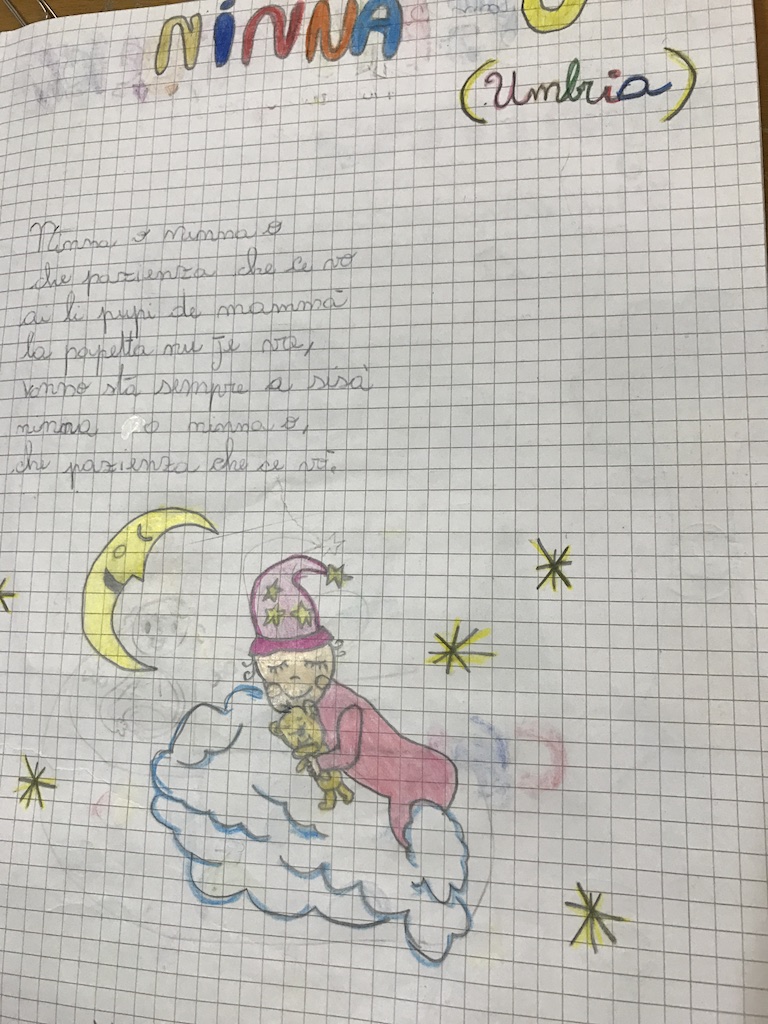 NINNA O
(Umbria)
Ninna o ninna o
che pazienza che ce vo
a li pupi de mammà
la papetta nu je va,
vonno stà sempre a sisà
ninna o ninna o,
che pazienza che ce vò.